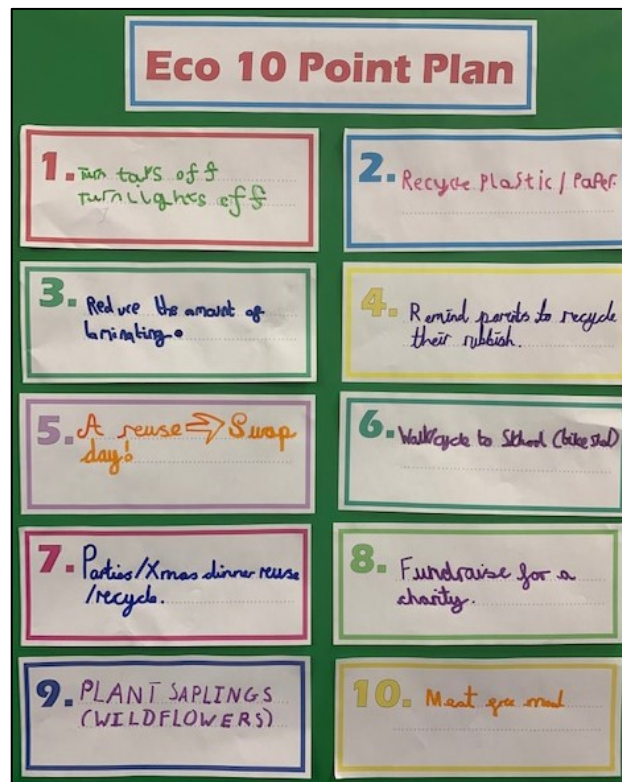 Eco 10 Point Plan
1. Turn taps off
turn lights off
2. Recycle Plastic / Paper.
3. Reduce the amount of
laminating.
4. Remind parents to recycle
their rubbish.
5. A reuse ⇒ Swap
day!
6. Walk/cycle to School (bike
7. Parties/Xmas dinner reuse
/recycle.
8. Fundraise for a
charity.
9. PLANT SAPLINGS
(WILDFLOWERS)
10. Meat free